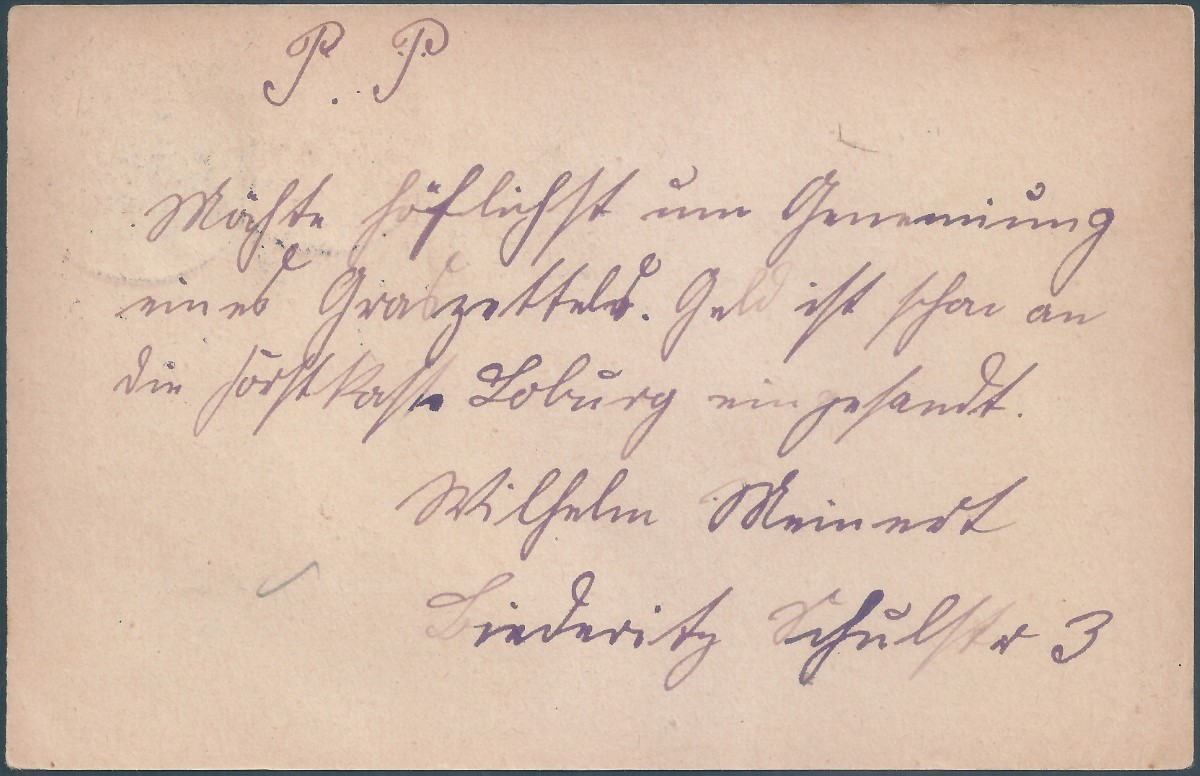 P. P
Möchte höflichst um Genemiung
eines Graszettels. Geld ist schon an
die Forstkasse Loburg eingesandt.
Wilhelm Meinert
Biederitz Schulstr 3